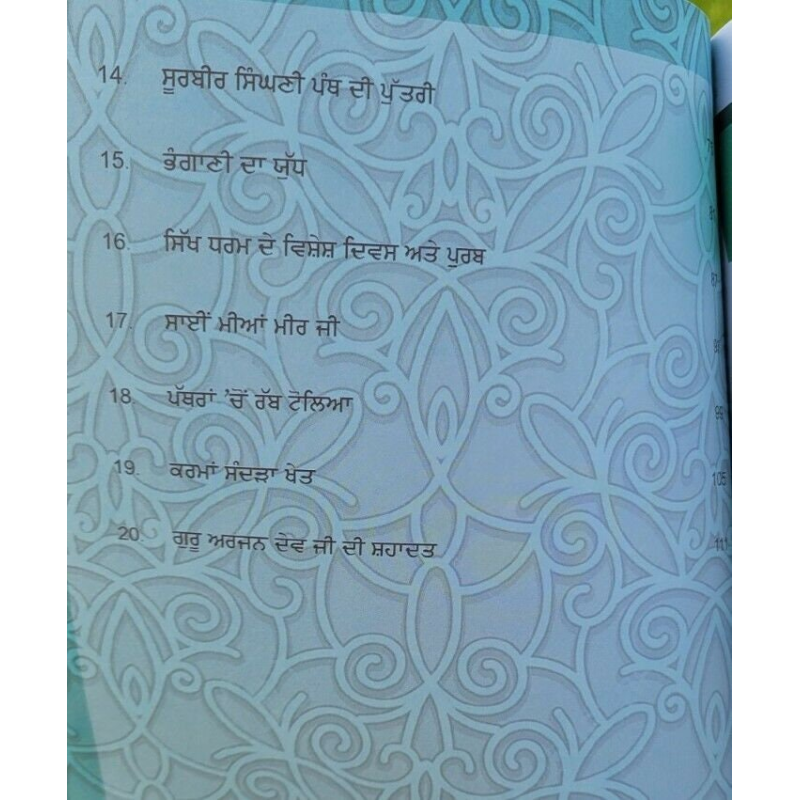 14. ਸੂਰਬੀਰ ਸਿੰਘਣੀ ਪੰਥ ਦੀ ਪੁੱਤਰੀ
15. ਭੰਗਾਣੀ ਦਾ ਯੁੱਧ
16. ਸਿੱਖ ਧਰਮ ਦੇ ਵਿਸ਼ੇਸ਼ ਦਿਵਸ ਅਤੇ ਪੁਰਬ
17. ਸਾਈਂ ਮੀਆਂ ਮੀਰ ਜੀ
18. ਪੱਥਰਾਂ 'ਚੋਂ ਰੱਬ ਟੋਲਿਆ 99
19. ਕਰਮਾਂ ਸੰਦੜਾ ਖੇਤ 105
20. ਗੁਰੂ ਅਰਜਨ ਦੇਵ ਜੀ ਦੀ ਸ਼ਹਾਦਤ 111